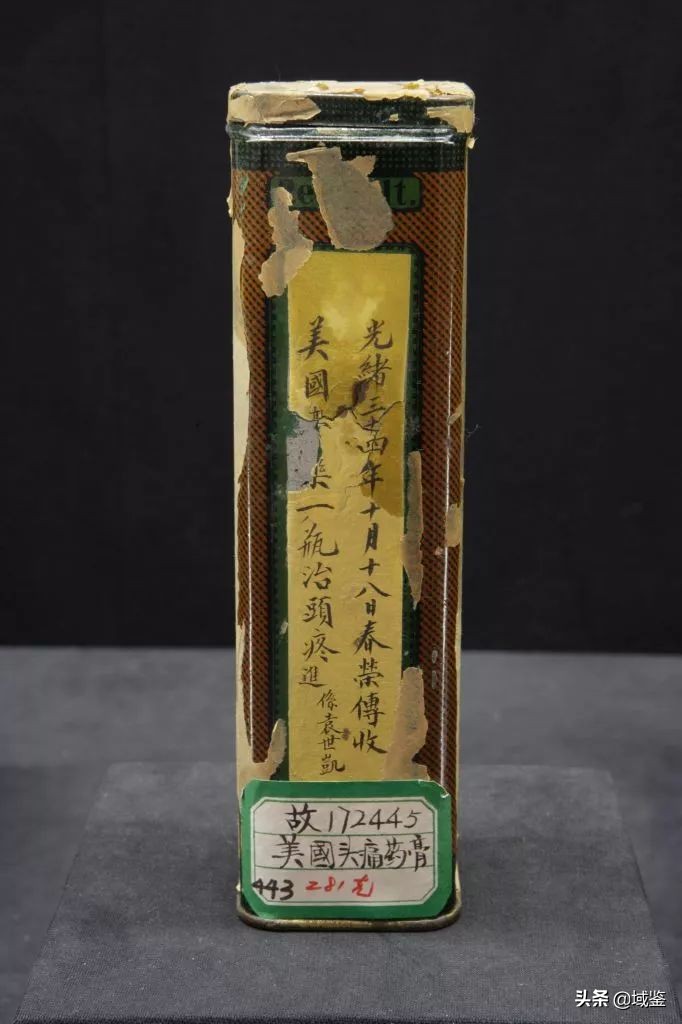 光緒三十四年十月十八日春榮傳收
美國 一瓶治頭疼
係袁世凱
進
故172445
美國头痛药膏
443 281克
头条 @域鉴